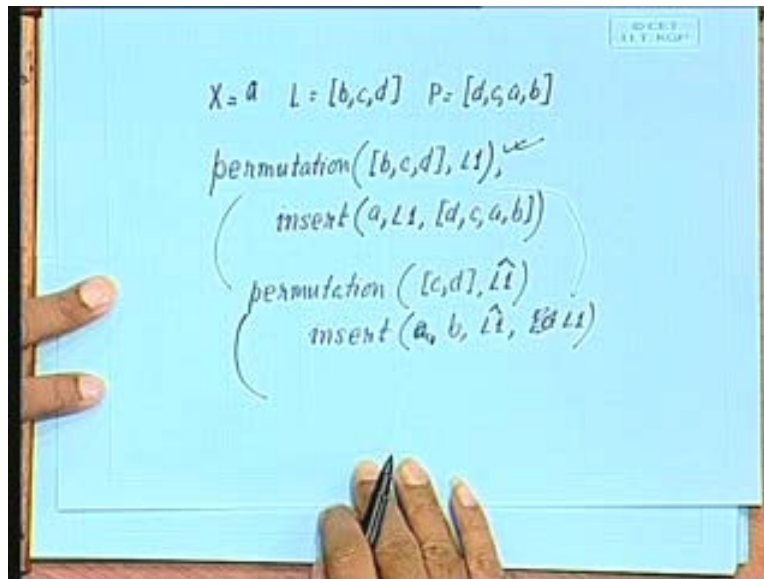 © CET
I.I.T. KGP
X = a L = [b,c,d] P = [d,c,a,b]
permutation([b,c,d], L1),
insert(a, L1, [d,c,a,b])
permutation ([c,d], L̂1)
insert (a, b, L̂1, L1)